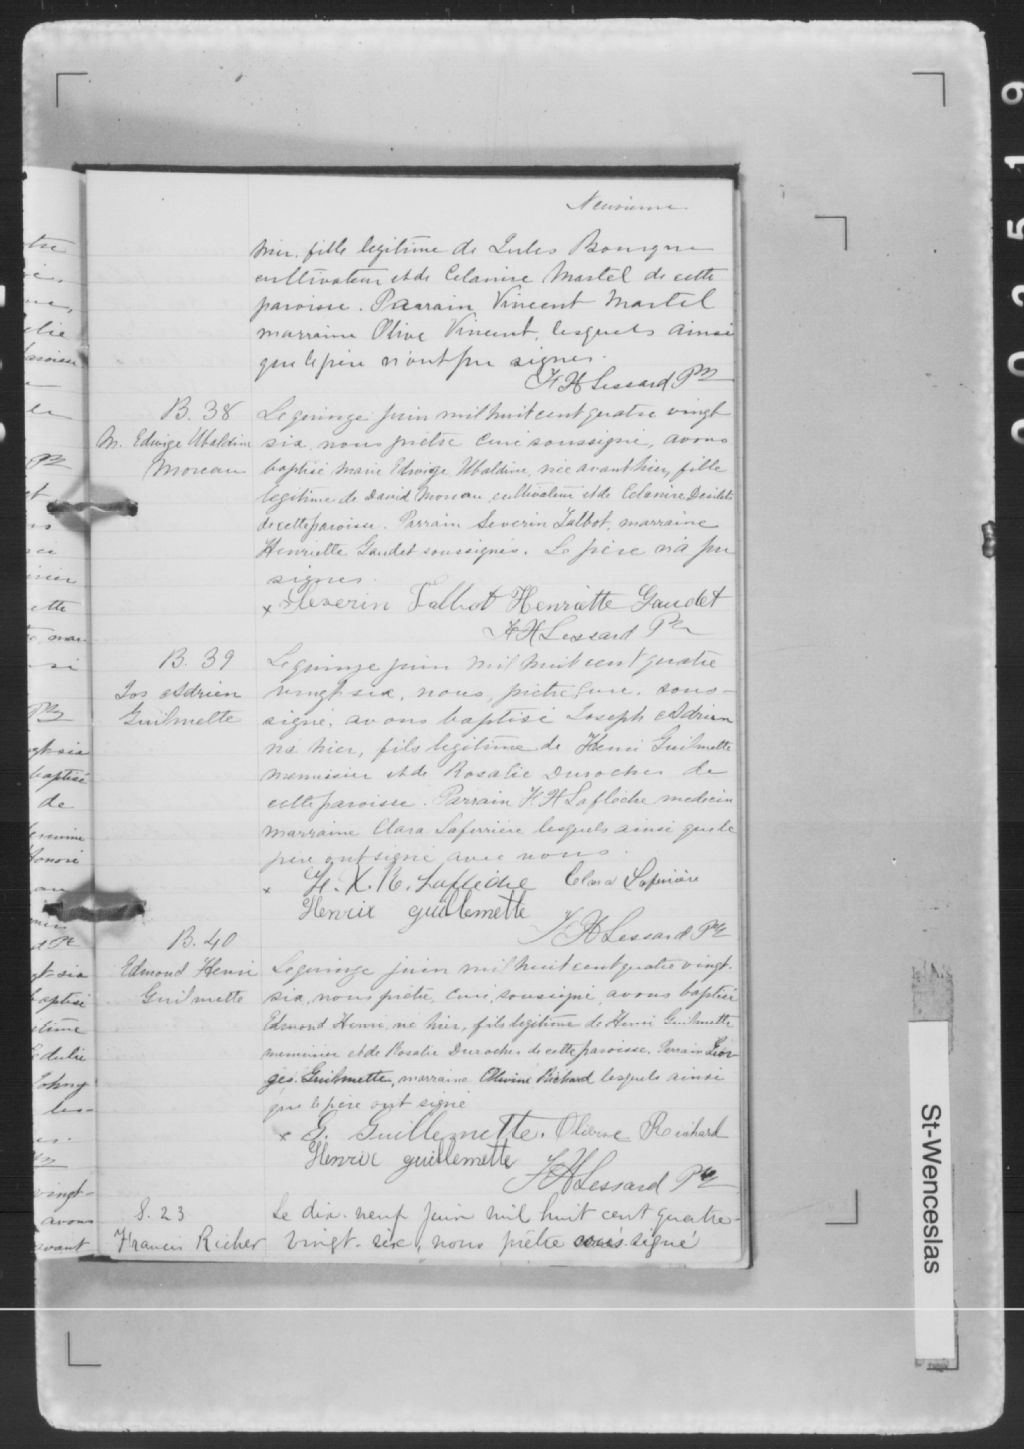 Neuvième
hier, fille legitime de Jules Bourque
cultivateur et de Celanire Martel de cette
paroisse. Parrain Vincent Martel
marraine Olive Vincent, lesquels ainsi
que le père n'ont pu signer.
F H Lessard Ptre
B. 38
M. Edwige Ubaldine
Moreau
Le quinze juin mil huit cent quatre vingt
six, nous prêtre Curé soussigné, avons
baptisé Marie Edwige Ubaldine, née avant hier, fille
legitime de David Moreau, cultivateur et de Celanire Désilets
de cette paroisse. Parrain Severin Talbot, marraine
Henriette Gaudet soussignés. Le père n'a pu
signer.
x Severin Talbot Henriette Gaudet
F H Lessard Ptre
B. 39
Jos Adrien
Guilmette
Le quinze juin mil huit cent quatre
vingt six, nous, prêtre Curé, sous-
signé, avons baptisé Joseph Adrien
né hier, fils legitime de Henri Guilmette
menuisier et de Rosalie Durocher de
cette paroisse. Parrain H H Laflèche medecin
marraine Clara Laferrière lesquels ainsi que le
père ont signé avec nous.
x H. X. R. Laflèche Clara Laferrière
Henrix guillemette
F H Lessard Ptre
B. 40
Edmond Henri
Guilmette
Le quinze juin mil huit cent quatre vingt-
six, nous prêtre, Curé, soussigné, avons baptisé
Edmond Henri, né hier, fils legitime de Henri Guilmette
menuisier et de Rosalie Durocher de cette paroisse. Parrain Geor-
ges Guilmette, marraine Olivine Richard lesquels ainsi
que le père ont signé
x G. Guillemette. Olivine Richard
Henrix guillemette
F H Lessard Ptre
S. 23
Francis Richer
Le dix-neuf juin mil huit cent quatre-
vingt-six, nous prêtre sous-signé
St-Wenceslas